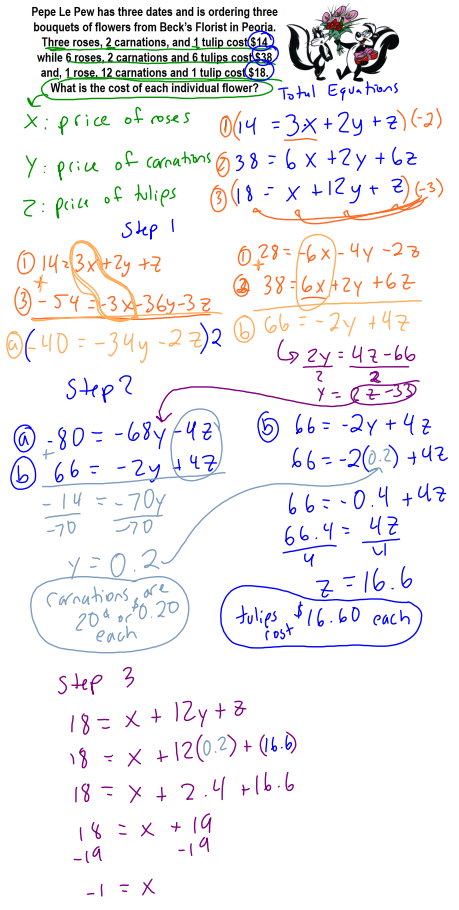 Pepe Le Pew has three dates and is ordering three
bouquets of flowers from Beck's Florist in Peoria.
Three roses, 2 carnations, and 1 tulip cost $14
while 6 roses, 2 carnations and 6 tulips cost $38
and, 1 rose, 12 carnations and 1 tulip cost $18.
What is the cost of each individual flower?
Total Equations
X: price of roses
Y: price of carnations
Z: price of tulips
① (14 = 3x + 2y + z)(-2)
② 38 = 6x + 2y + 6z
③ (18 = x + 12y + z)(-3)
Step 1
① 14 = 3x + 2y + z
+
③ -54 = -3x - 36y - 3z
ⓐ (-40 = -34y - 2z)2
① -28 = -6x - 4y - 2z
+
② 38 = 6x + 2y + 6z
ⓑ 66 = -2y + 4z
2y = 4z - 66
2 2
y = 2z - 33
Step 2
ⓐ -80 = -68y - 4z
+
ⓑ 66 = -2y + 4z
-14 = -70y
-70 -70
y = 0.2
carnations are
20¢ or $0.20
each
ⓑ 66 = -2y + 4z
66 = -2(0.2) + 4z
66 = -0.4 + 4z
66.4 = 4z
4 4
z = 16.6
tulips cost $16.60 each
Step 3
18 = x + 12y + z
18 = x + 12(0.2) + (16.6)
18 = x + 2.4 + 16.6
18 = x + 19
-19 -19
-1 = x